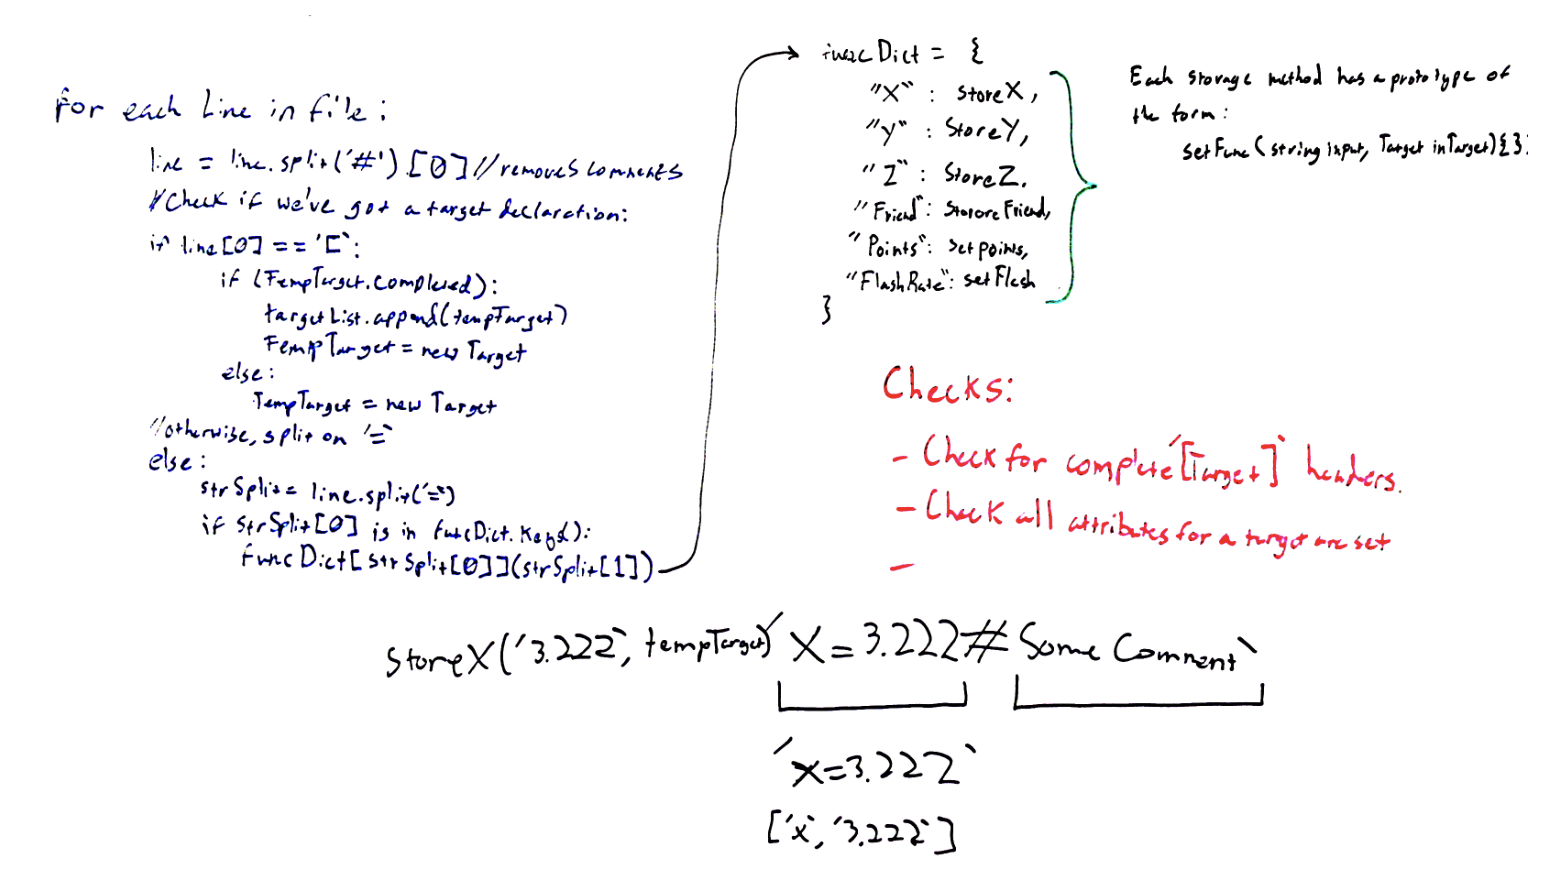 for each Line in file:
line = line.split('#').[0] // removes comments
// Check if we've got a target declaration:
if line[0] == '[':
if (TempTarget.Completed):
targetList.append(tempTarget)
TempTarget = new Target
else:
TempTarget = new Target
// otherwise, split on '='
else:
strSplit = line.split('=')
if strSplit[0] is in funcDict.Keys():
funcDict[strSplit[0]](strSplit[1])
funcDict = {
"X" : storeX,
"Y" : StoreY,
"Z" : StoreZ.
"Friend" : StororeFriend,
"Points" : setpoints,
"FlashRate" : setFlash
}
Each storage method has a prototype of
the form:
setFunc(string input, Target inTarget){};
Checks:
- Check for complete '[Target]' headers.
- Check all attributes for a target are set
-
storeX('3.222', tempTarget) 'X=3.222# Some Comment'
'x=3.222'
['x', '3.222']